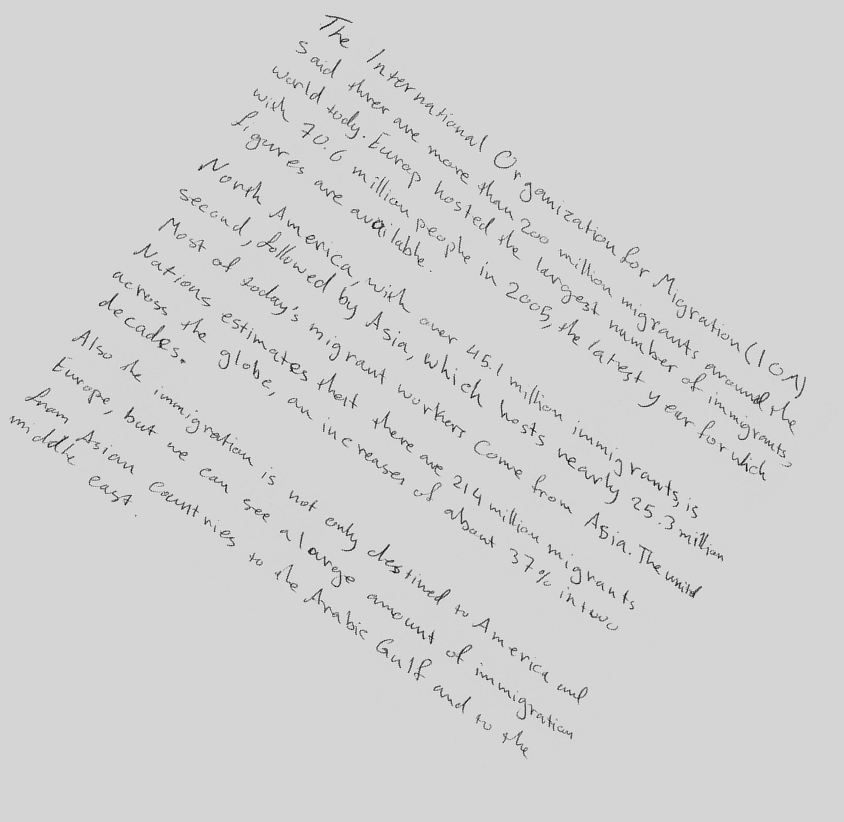 The International Organization for Migration (IOM)
said threr are more than 200 million migrants around the
world tody. Europ hosted the largest number of immigrants,
with 70.6 million peophe in 2005, the latest year for which
figures are available.
North America, with over 45.1 million immigrants, is
second, followed by Asia, which hosts nearly 25.3 million
Most of today's migrant workers come from Asia. The unitd
Nations estimates thert there are 214 million migrants
across the globe, an increaser of about 37% in two
decades.
Also the immigration is not only destined to America and
Europe, but we can see a large amount of immigration
from Asian countries to the Arabic Gulf and to the
middle east.